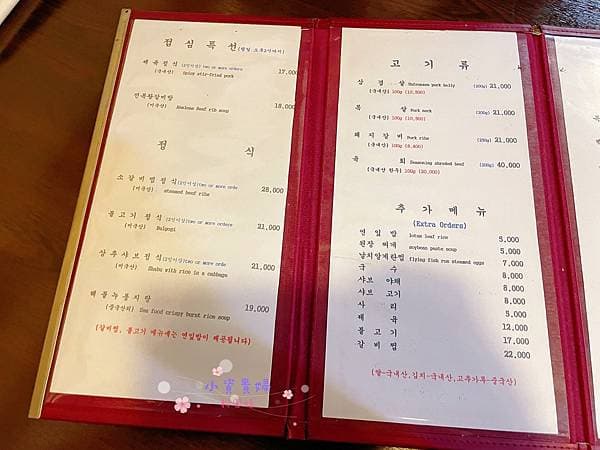 점 심 특 선 (평일 오후3시까지)
제 육 정 식 (2인이상) two or more orders 17,000
(국내산) Spicy stir-fried pork
전복왕갈비탕 18,000
(미국산) Abalone Beef rib soup
정 식
소 갈 비 찜 정 식 (2인이상) two or more orde 28,000
(미국산) steamed beef ribs
불 고 기 정 식 (2인이상) two or more orders 21,000
(미국산) Bulgogi
상 추 샤 브 정 식 (2인이상) two or more orde 21,000
(미국산) Shabu with rice in a cabbage
해 물 누 룽 지 탕 19,000
(중국산외) Sea food crispy burnt rice soup
(갈비찜, 불고기 메뉴에는 연잎밥이 제공됩니다)
고 기 류
삼 겹 살 Unreasaon pork belly (200g) 21,000
(국내산) 100g (10,500)
목 살 Pork neck (200g) 21,000
(국내산) 100g (10,500)
돼 지 갈 비 Pork ribs (250g) 21,000
(국내산) 100g (8,400)
육 회 Seasoning shreded beef (200g) 40,000
(국내산 한우) 100g (20,000)
추 가 메 뉴
(Extra Orders)
연 잎 밥 lotus leaf rice 5,000
된장 찌개 soybean paste soup 5,000
날치알계란찜 flying fish run steamed eggs 7,000
국 수 8,000
샤브 야채 8,000
샤브 고기 8,000
사 리 5,000
제 육 12,000
불 고 기 17,000
갈 비 찜 22,000
(쌀-국내산,김치-국내산,고추가루-중국산)
小資貴婦